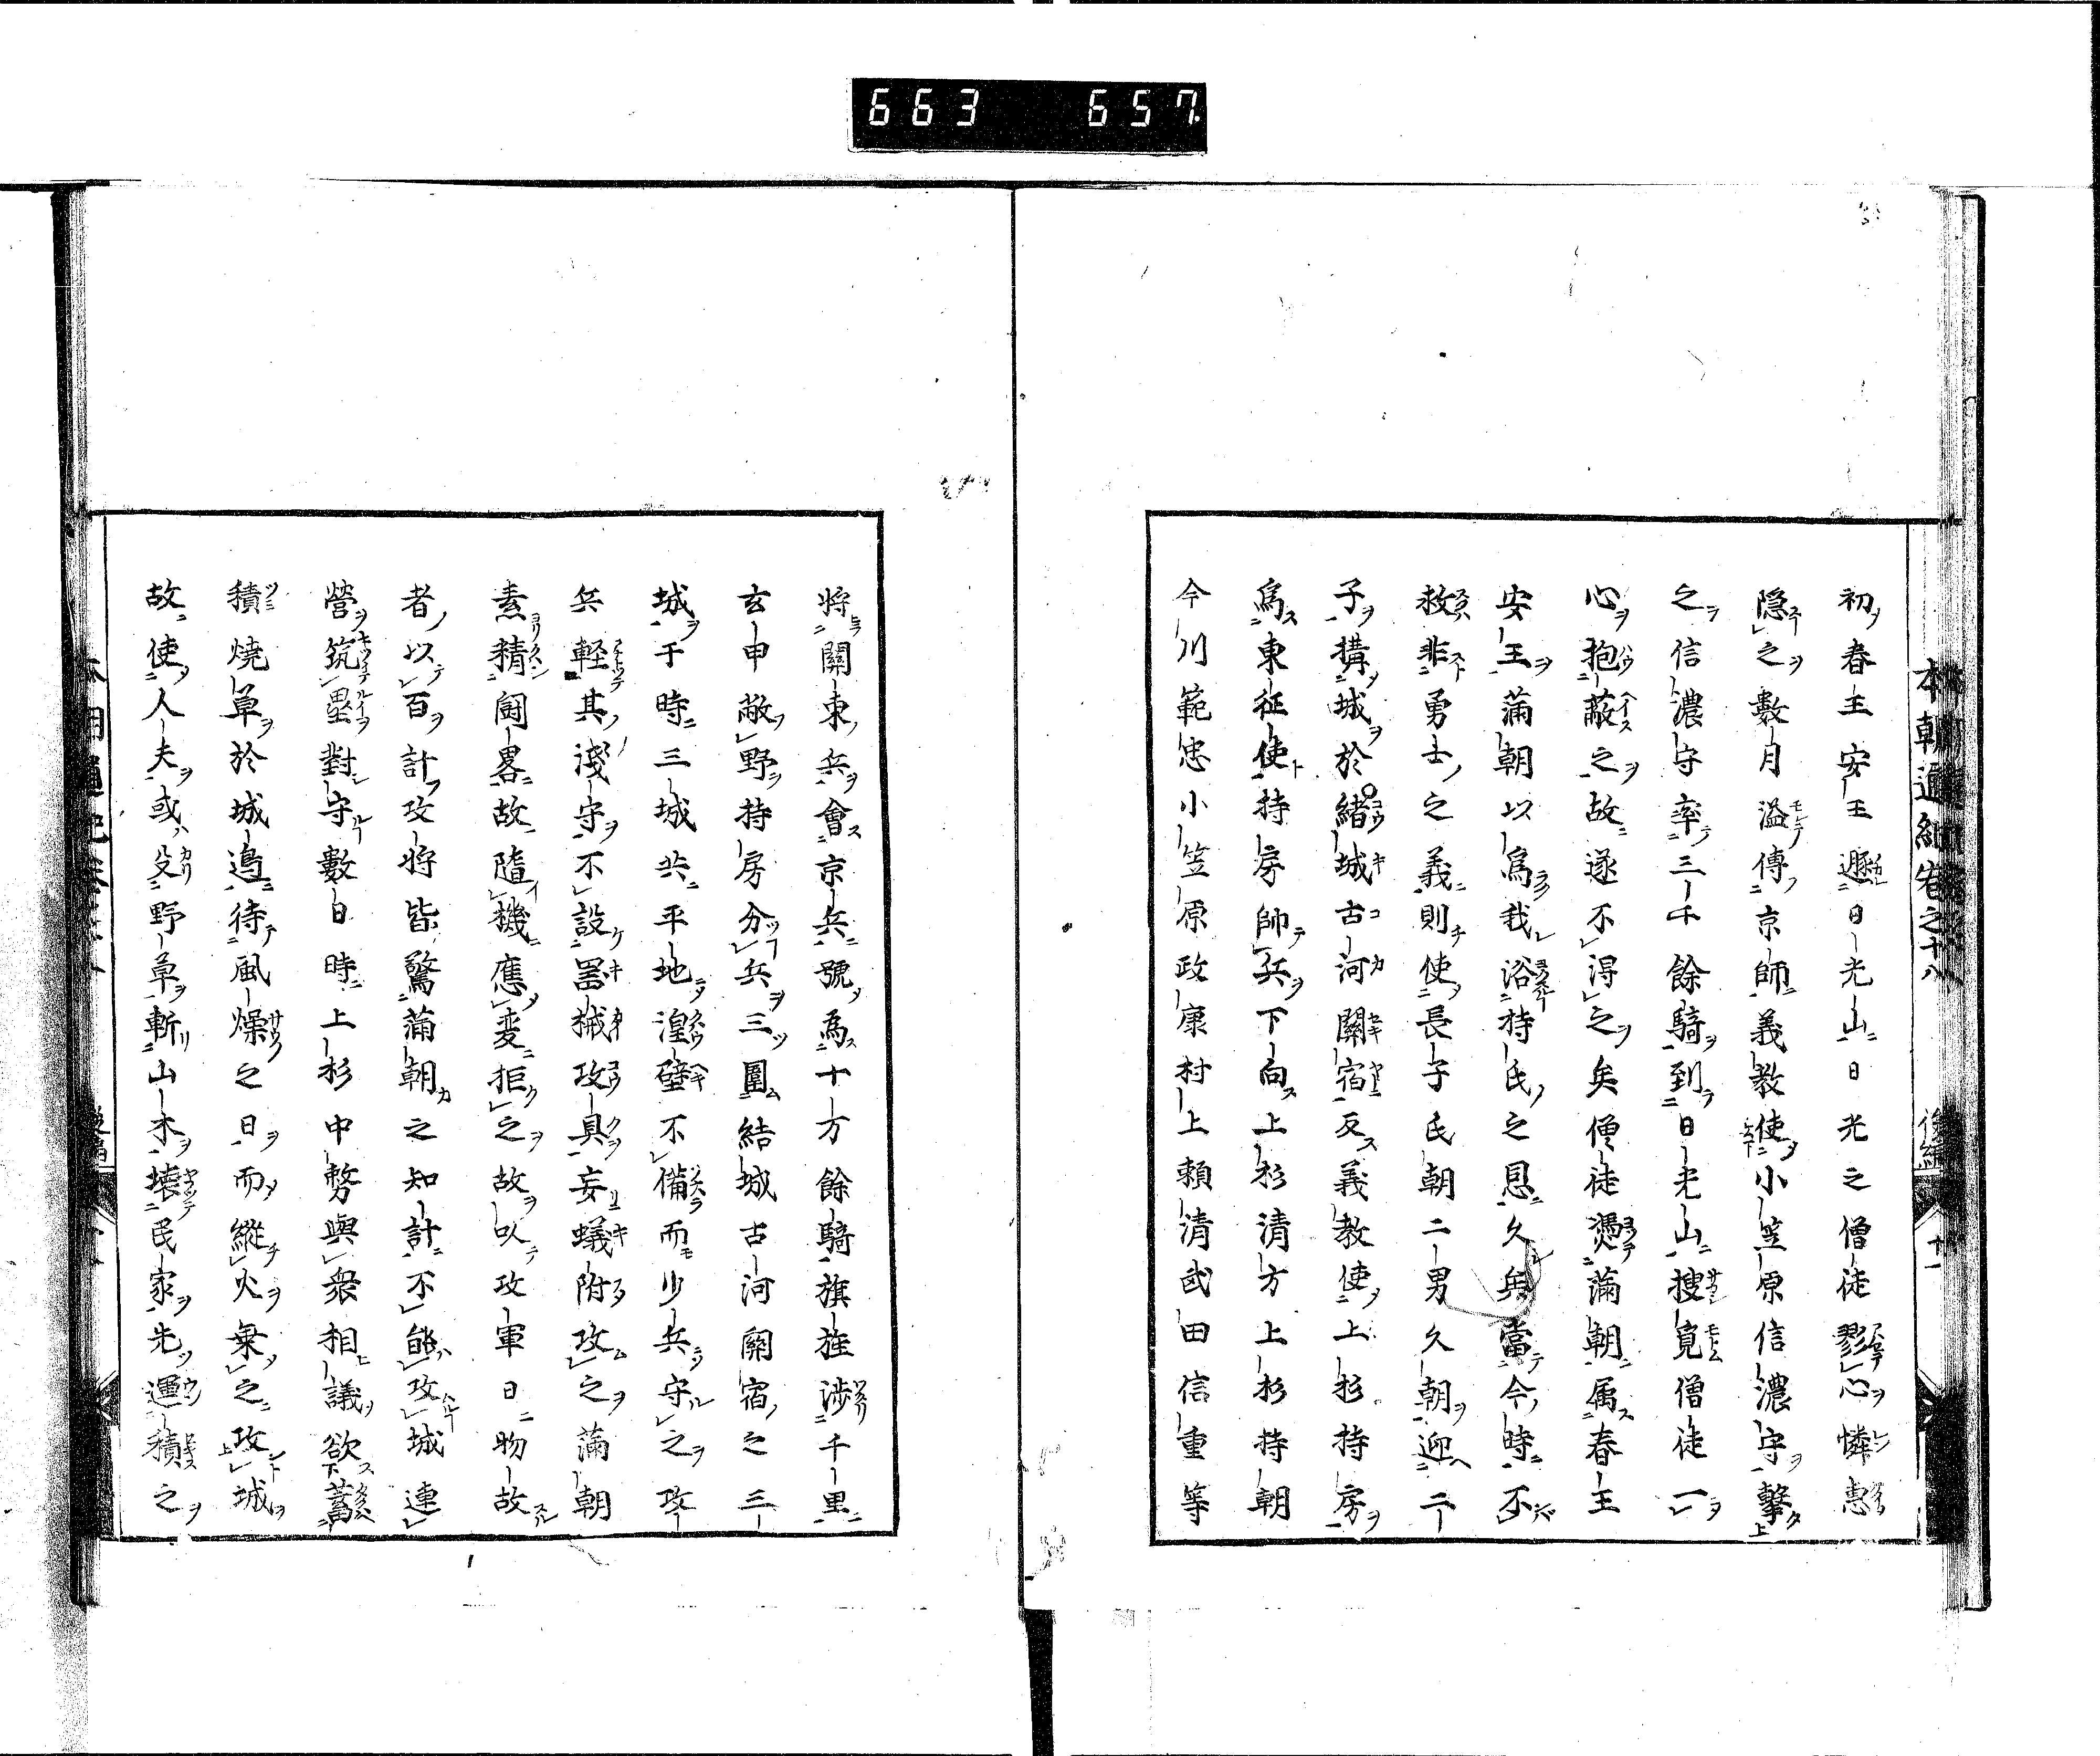 663 657
本朝通紀卷之十八 後編 十一
初春王安王遯日光山日光之僧徒戮心憐恵
隠之數月溢傳京師義教使小笠原信濃守撃
之信濃守率三千餘騎到日光山搜覓僧徒一
心抱蔽之故遂不得之矣僧徒憑満朝属春王
安王満朝以爲我浴持氏之恩久矣當今時不
救非勇士之義則使長子氏朝二男久朝迎二
子搆城於緒城古河關宿反義教使上杉持房
爲東征使持房帥兵下向上杉清方上杉持朝
今川範忠小笠原政康村上頼清武田信重等
将關東兵會京兵號爲十万餘騎旗旌渉千里
玄甲敝野持房分兵三圍結城古河關宿之三
城于時三城共平地湟壁不備而少兵守之攻
兵軽其淺守不設罟械攻具妄蟻附攻之満朝
素精闘畧故隨機應変拒之故以攻軍日物故
者以百計攻将皆驚満朝之知計不能攻城連
營筑壘對守數日時上杉中務與衆相議欲蓄
積燒草於城邉待風燥之日而縱火乗之攻城
故使人夫或殳野草斬山木壊民家先運積之